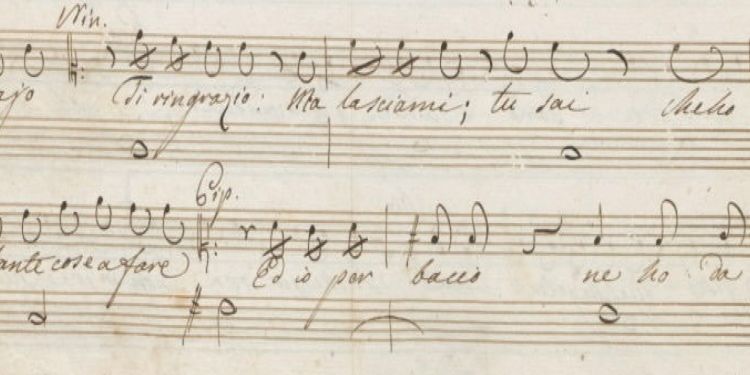 Nin.
ajo Ti ringrazio: Ma lasciami; tu sai che ho
Pip.
tante cose a fare Ed io per bacco ne ho da